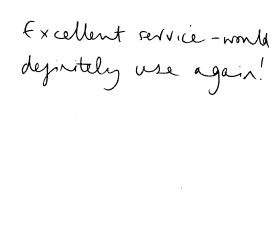 Excellent service - would
definitely use again!